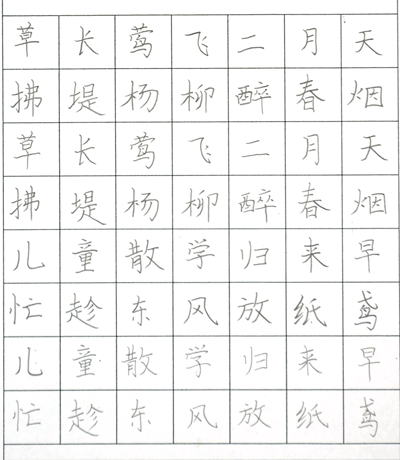 草长莺飞二月天
拂堤杨柳醉春烟
草长莺飞二月天
拂堤杨柳醉春烟
儿童散学归来早
忙趁东风放纸鸢
儿童散学归来早
忙趁东风放纸鸢